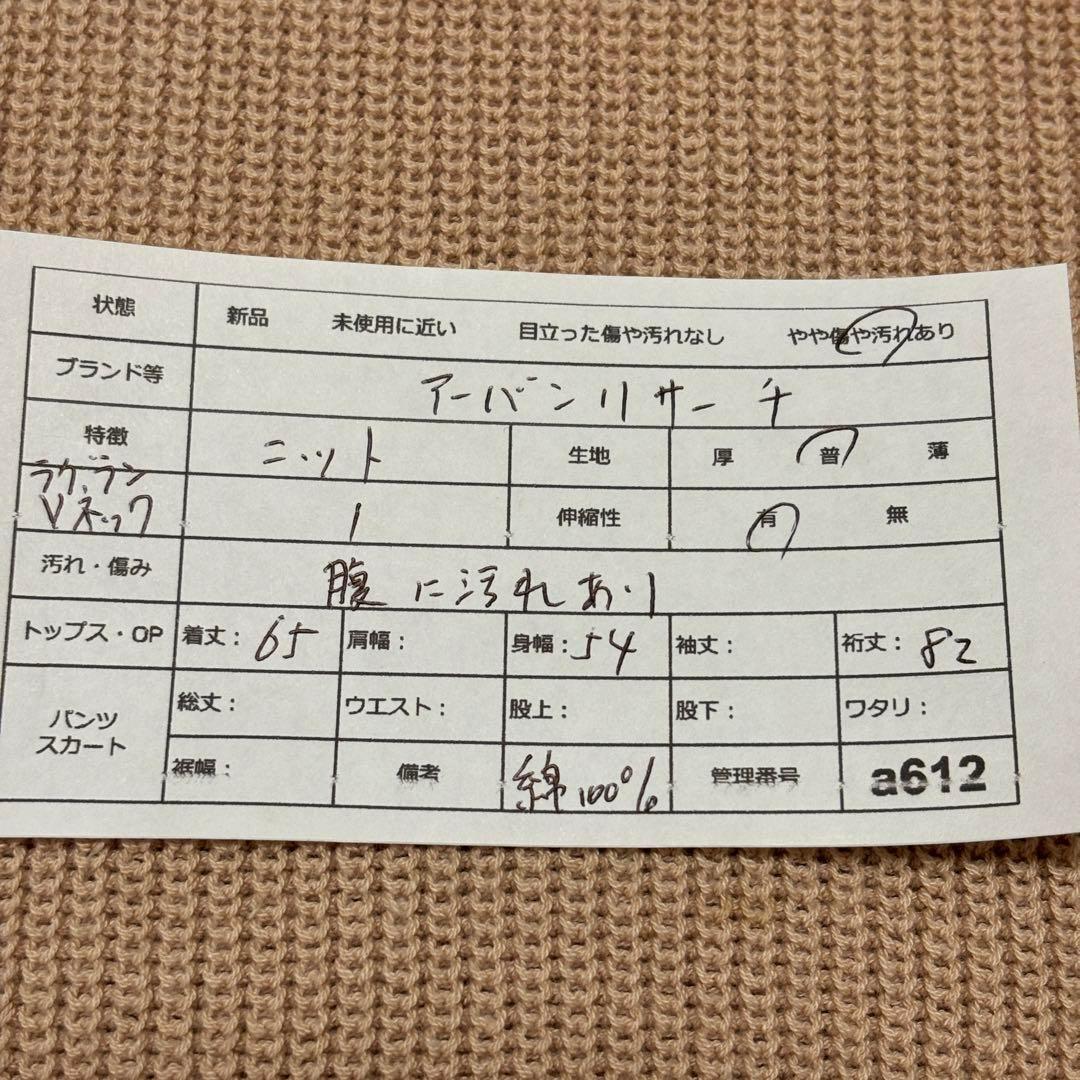 状態 新品 未使用に近い 目立った傷や汚れなし やや傷や汚れあり
ブランド等 アーバンリサーチ
特徴 ニット 生地 厚 普 薄
ラグラン
Vネック 1 伸縮性 有 無
汚れ・傷み 腹に汚れあり
トップス・OP 着丈: 65 肩幅: 身幅: 54 袖丈: 裄丈: 82
パンツ
スカート 総丈: ウエスト: 股上: 股下: ワタリ:
裾幅: 備考 綿100% 管理番号 a612